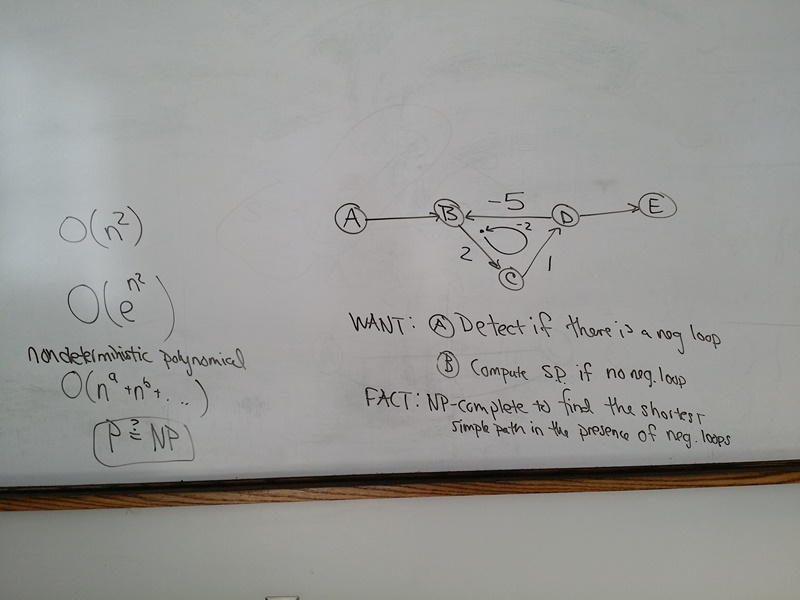 O(n²)
O(e^n²)
nondeterministic polynomical
O(n^a + n^b + ...)
P ≟ NP
A B -5 D E
-2
2 C 1
WANT: Ⓐ Detect if there is a neg loop
Ⓑ Compute S.P. if no neg. loop
FACT: NP-complete to find the shortest
simple path in the presence of neg. loops